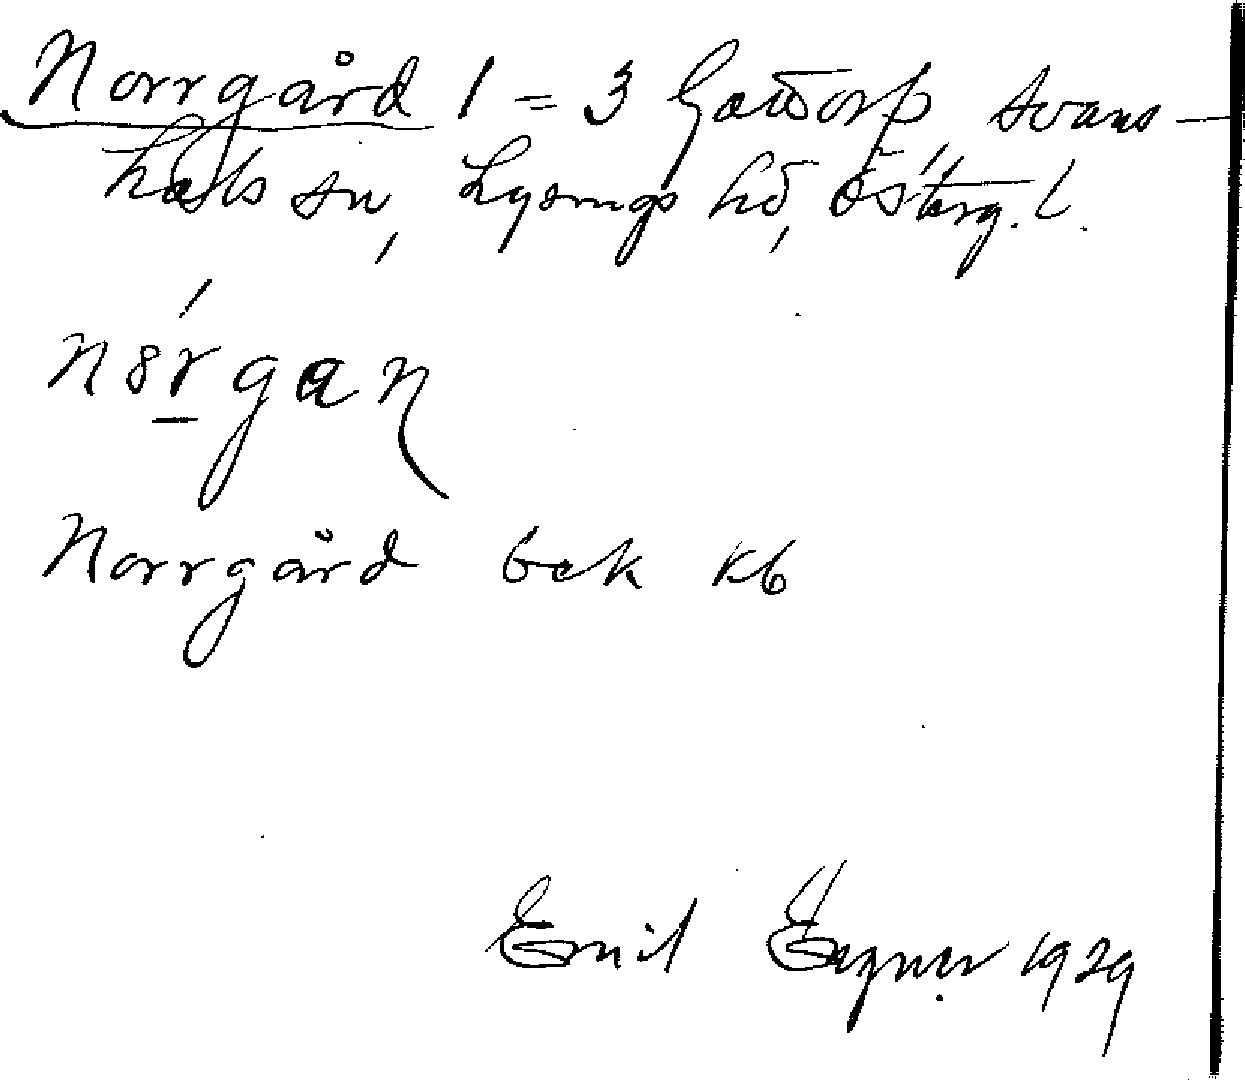 Norrgård 1 = 3 Gottorp Svans-
hals sn, Lysings hd, Österg. l.
n8rgan
Norrgård bek kb
Emil Egnér 1929